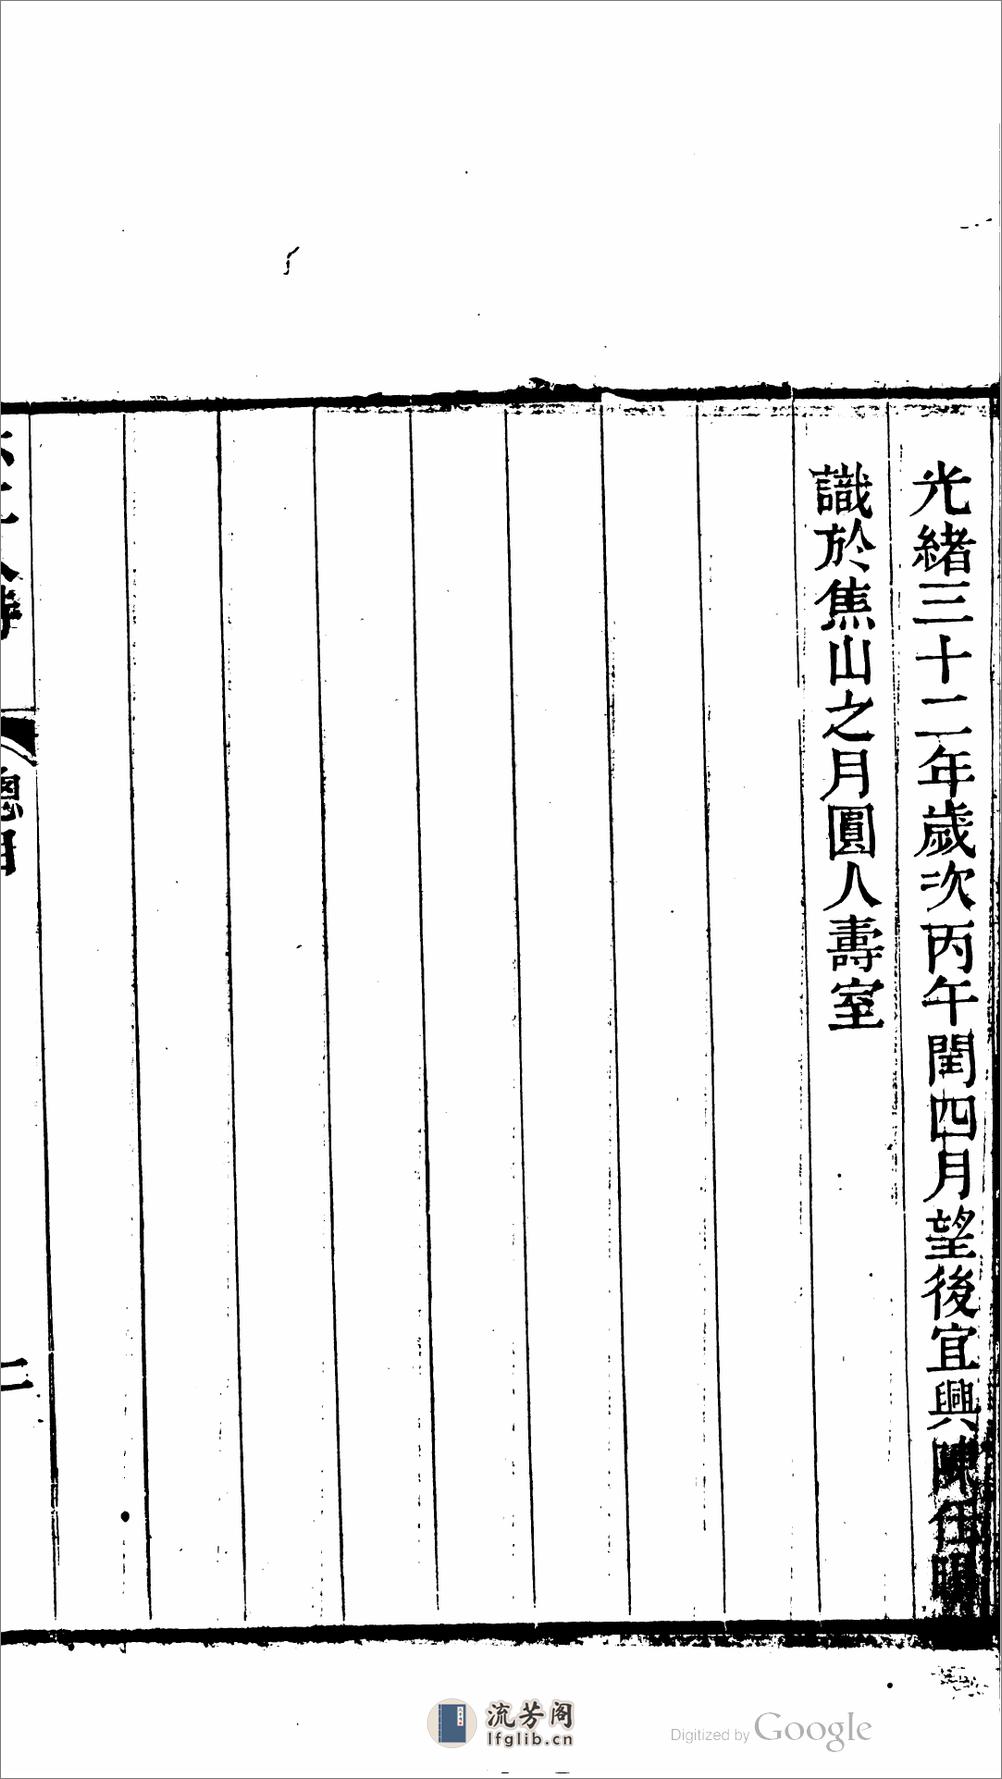 光緒三十二年歲次丙午閏四月望後宜興陳任
識於焦山之月圓人壽室
總目
二
流芳阁
lfglib.cn
Digitized by Google